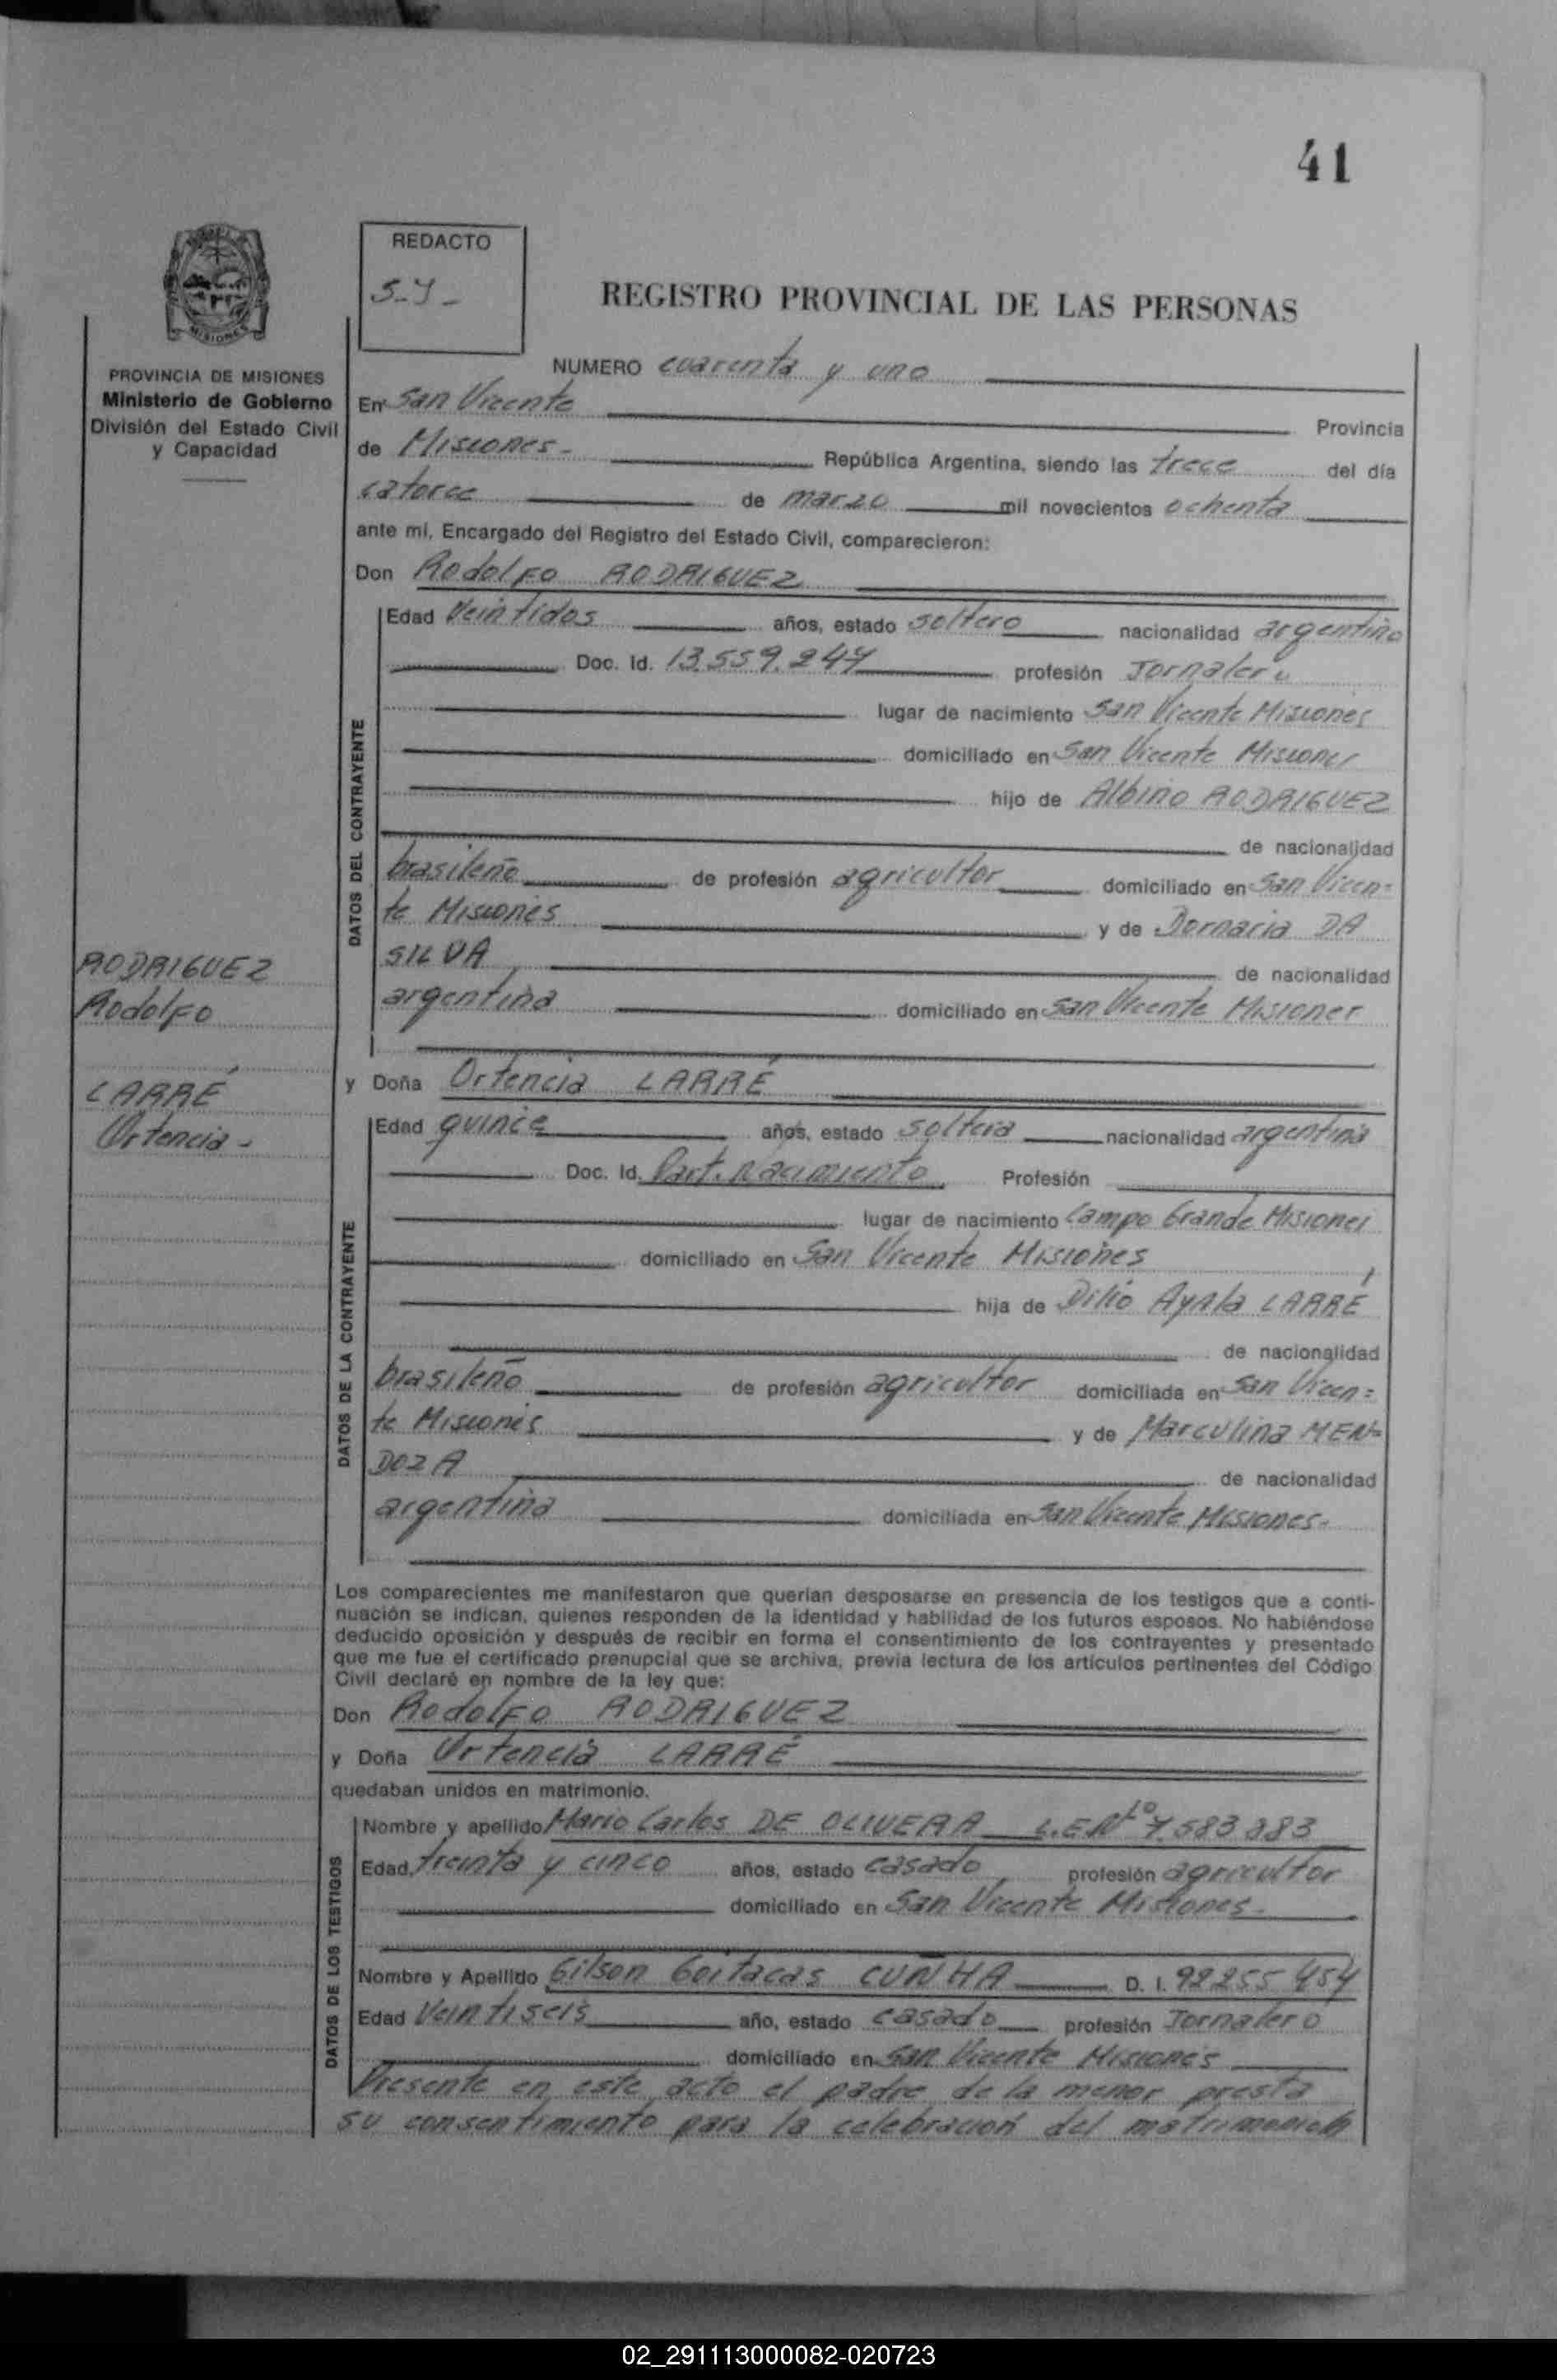 41
REDACTO
S-Y-
REGISTRO PROVINCIAL DE LAS PERSONAS
PROVINCIA DE MISIONES
Ministerio de Gobierno
División del Estado Civil
y Capacidad
NUMERO cuarenta y uno
En San Vicente Provincia
de Misiones- República Argentina, siendo las trece del día
catorce de marzo mil novecientos ochenta
ante mí, Encargado del Registro del Estado Civil, comparecieron:
Don Rodolfo RODRIGUEZ
DATOS DEL CONTRAYENTE
Edad Veintidos años, estado soltero nacionalidad argentino
Doc. Id. 13.559.244 profesión Jornalero
lugar de nacimiento San Vicente Misiones
domiciliado en San Vicente Misiones
hijo de Albino RODRIGUEZ
de nacionalidad
brasileño de profesión agricultor domiciliado en San Vicen=
te Misiones y de Dornaria DA
SILVA de nacionalidad
argentina domiciliado en San Vicente Misiones
RODRIGUEZ
Rodolfo
LARRÉ
Ortencia-
y Doña Ortencia LARRÉ
DATOS DE LA CONTRAYENTE
Edad quince años, estado soltera nacionalidad argentina
Doc. Id. Part. Nacimiento Profesión
lugar de nacimiento Campo Grande Misiones
domiciliado en San Vicente Misiones
hija de Dilio Ayala LARRÉ
de nacionalidad
brasileño de profesión agricultor domiciliada en San Vicen=
te Misiones y de Marculina MEN=
DOZA de nacionalidad
argentina domiciliada en San Vicente Misiones-
Los comparecientes me manifestaron que querían desposarse en presencia de los testigos que a conti-
nuación se indican, quienes responden de la identidad y habilidad de los futuros esposos. No habiéndose
deducido oposición y después de recibir en forma el consentimiento de los contrayentes y presentado
que me fue el certificado prenupcial que se archiva, previa lectura de los artículos pertinentes del Código
Civil declaré en nombre de la ley que:
Don Rodolfo RODRIGUEZ
y Doña Ortencia LARRÉ
quedaban unidos en matrimonio.
DATOS DE LOS TESTIGOS
Nombre y apellido Mario Carlos DE OLIVERA L.E.Nº 7.583.883
Edad, treinta y cinco años, estado casado profesión agricultor
domiciliado en San Vicente Misiones-
Nombre y Apellido Gilson Goitacas CUNHA D. I. 92255454
Edad Veintiseis año, estado casado profesión Jornalero
domiciliado en San Vicente Misiones
Presente en este acto el padre de la menor presta
su consentimiento para la celebracion del matrimonio
02_291113000082-020723